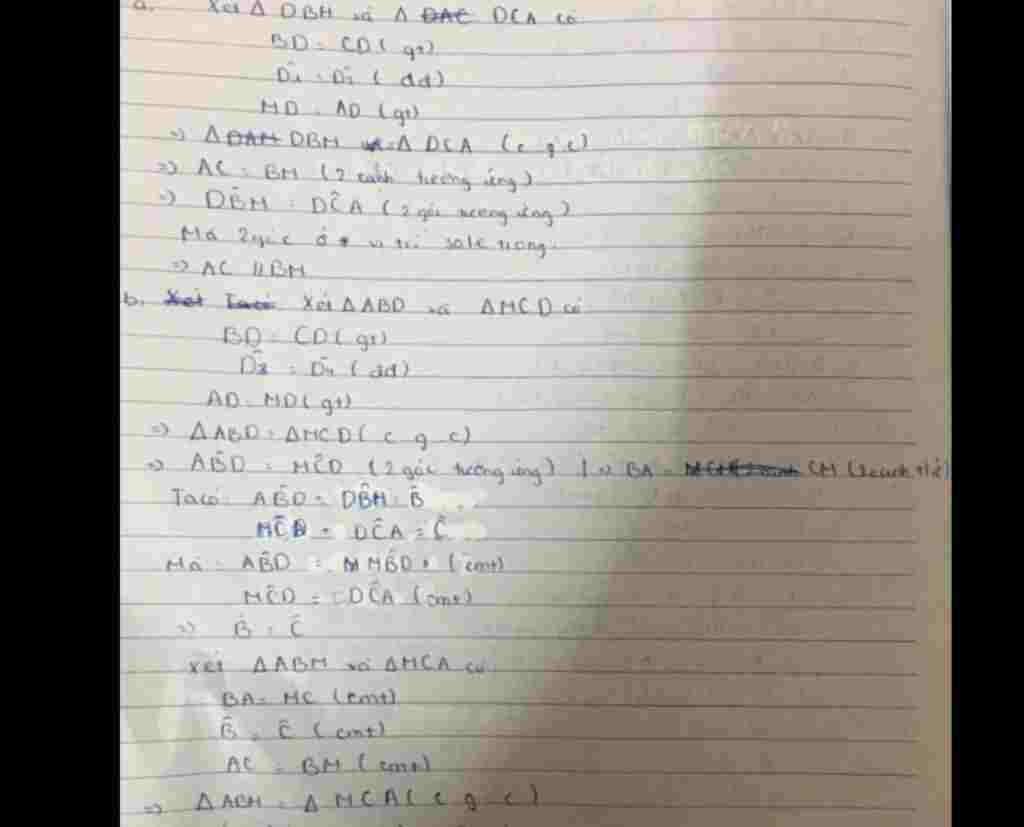 a. Xét Δ DBM và Δ DCA có
BD = CD (gt)
D̂₁ = D̂₂ (dd)
MD = AD (gt)
=> Δ DBM = Δ DCA (c g c)
=> AC = BM (2 cạnh tương ứng)
=> DB̂M = DĈA (2 góc tương ứng)
Mà 2 góc ở vị trí sole trong
=> AC // BM
b. Xét ΔABD và ΔMCD có
BD = CD (gt)
D̂₃ = D̂₄ (dd)
AD = MD (gt)
=> ΔABD = ΔMCD (c g c)
=> AB̂D = MĈD (2 góc tương ứng) | => BA = CM
Ta có: AB̂D = DB̂M = B̂
MĈD + DĈA = Ĉ
Mà AB̂D = MB̂D (cmt)
MĈD = DĈA (cmt)
=> B̂ = Ĉ
Xét ΔABM và ΔMCA có
BA = MC (cmt)
B̂ = Ĉ (cmt)
AC = BM (cmt)
=> ΔABM = ΔMCA (c g c)